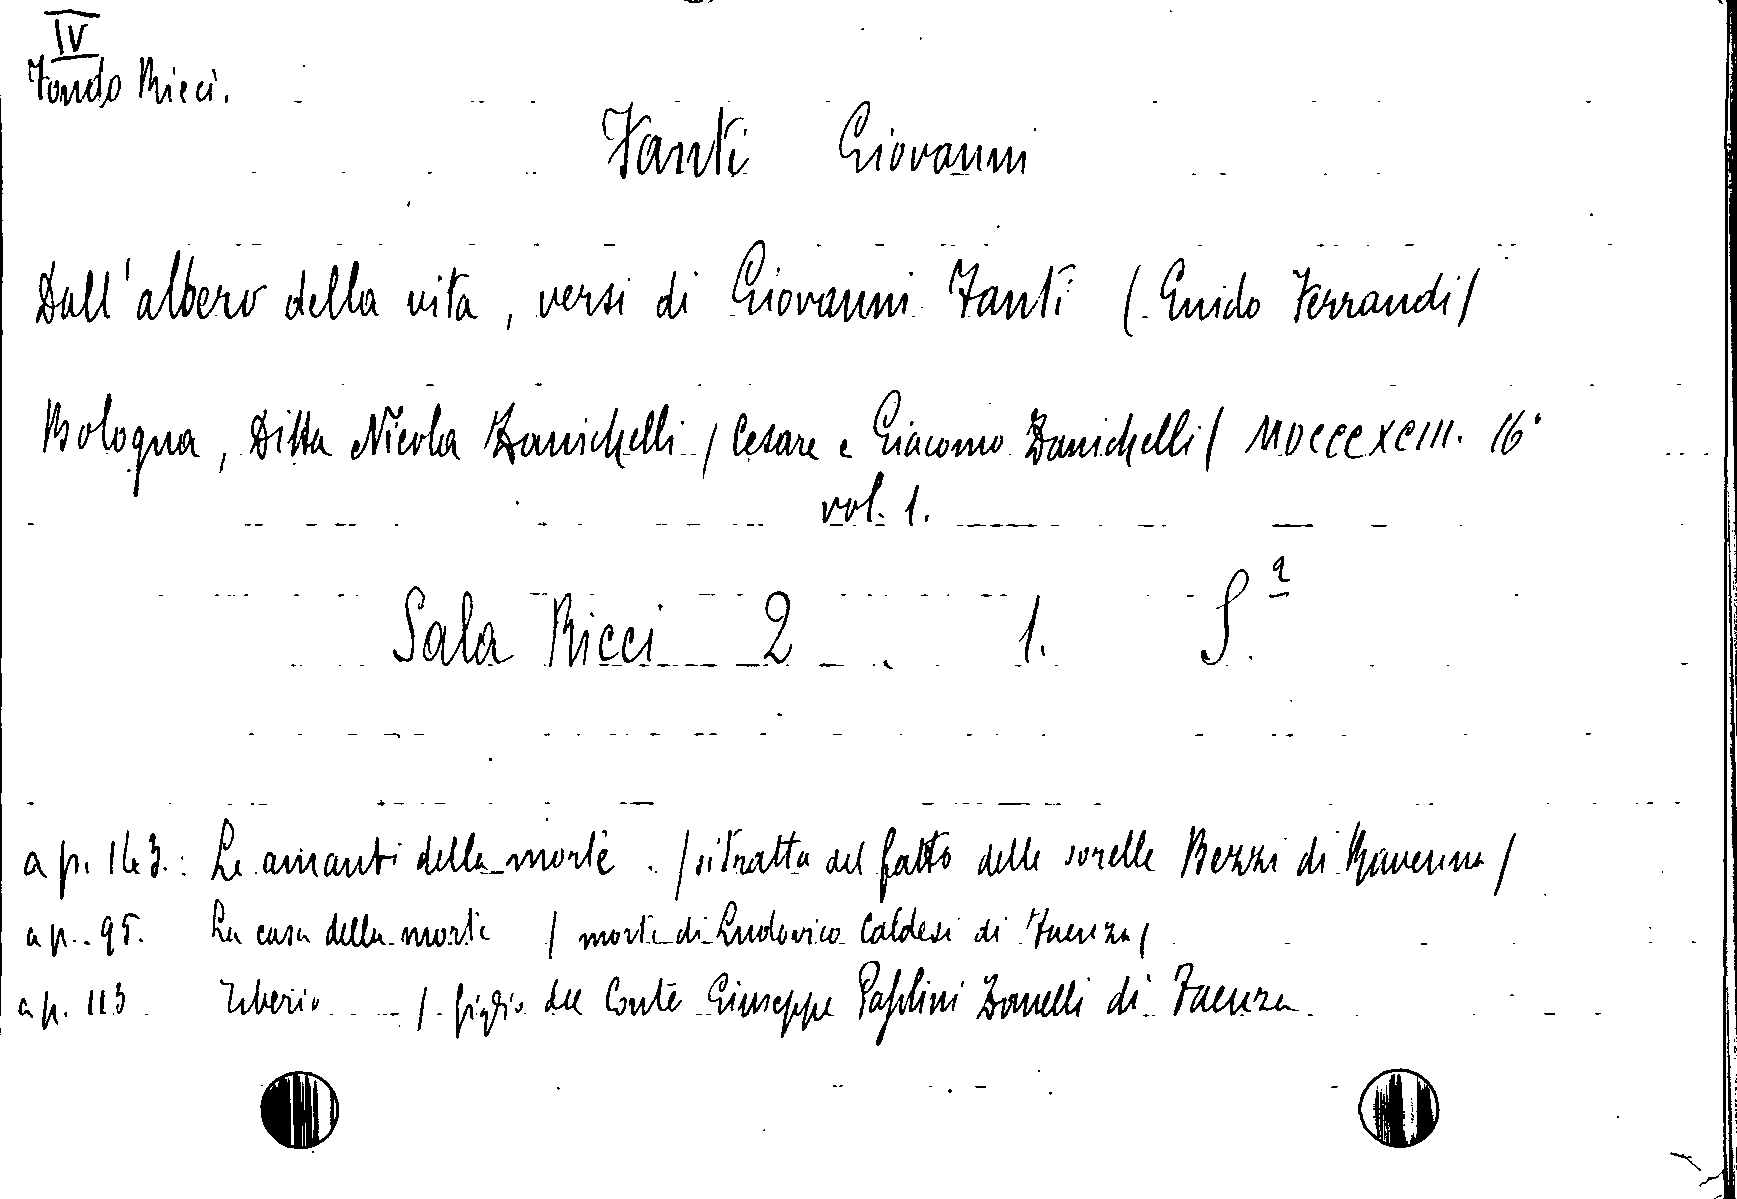 IV
Fondo Ricci.
Fanti Giovanni
Dall'albero della vita, versi di Giovanni Fanti (Guido Ferrandi/
Bologna, Ditta Nicola Zanichelli / Cesare e Giacomo Zanichelli / MDCCCXCIII. 16°
vol. 1.
Sala Ricci 2 1. S.
a p. 163.: Le amanti della morte. / si tratta del fatto delle sorelle Bezzi di Ravenna /
a p. 95. La casa della morte / morte di Ludovico Caldesi di Faenza /
a p. 113 Uberio / figlio del Conte Giuseppe Zanelli di Faenza